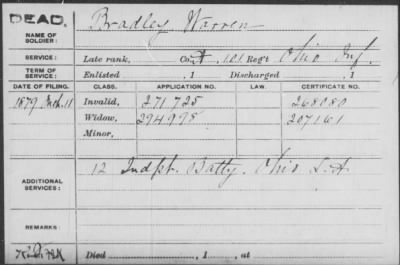 DEAD.
NAME OF SOLDIER: Bradley Warren
SERVICE: Late rank, Co. 101 Reg't Ohio Inf.
TERM OF SERVICE: Enlisted , 1 Discharged , 1
DATE OF FILING. CLASS. APPLICATION NO. LAW. CERTIFICATE NO.
1879 Mch. 11 Invalid, 271725 268080
Widow, 294998 207161
Minor,
ADDITIONAL SERVICES: 12 Indpt. Batty. Ohio L.A.
REMARKS:
Died , 1 , at